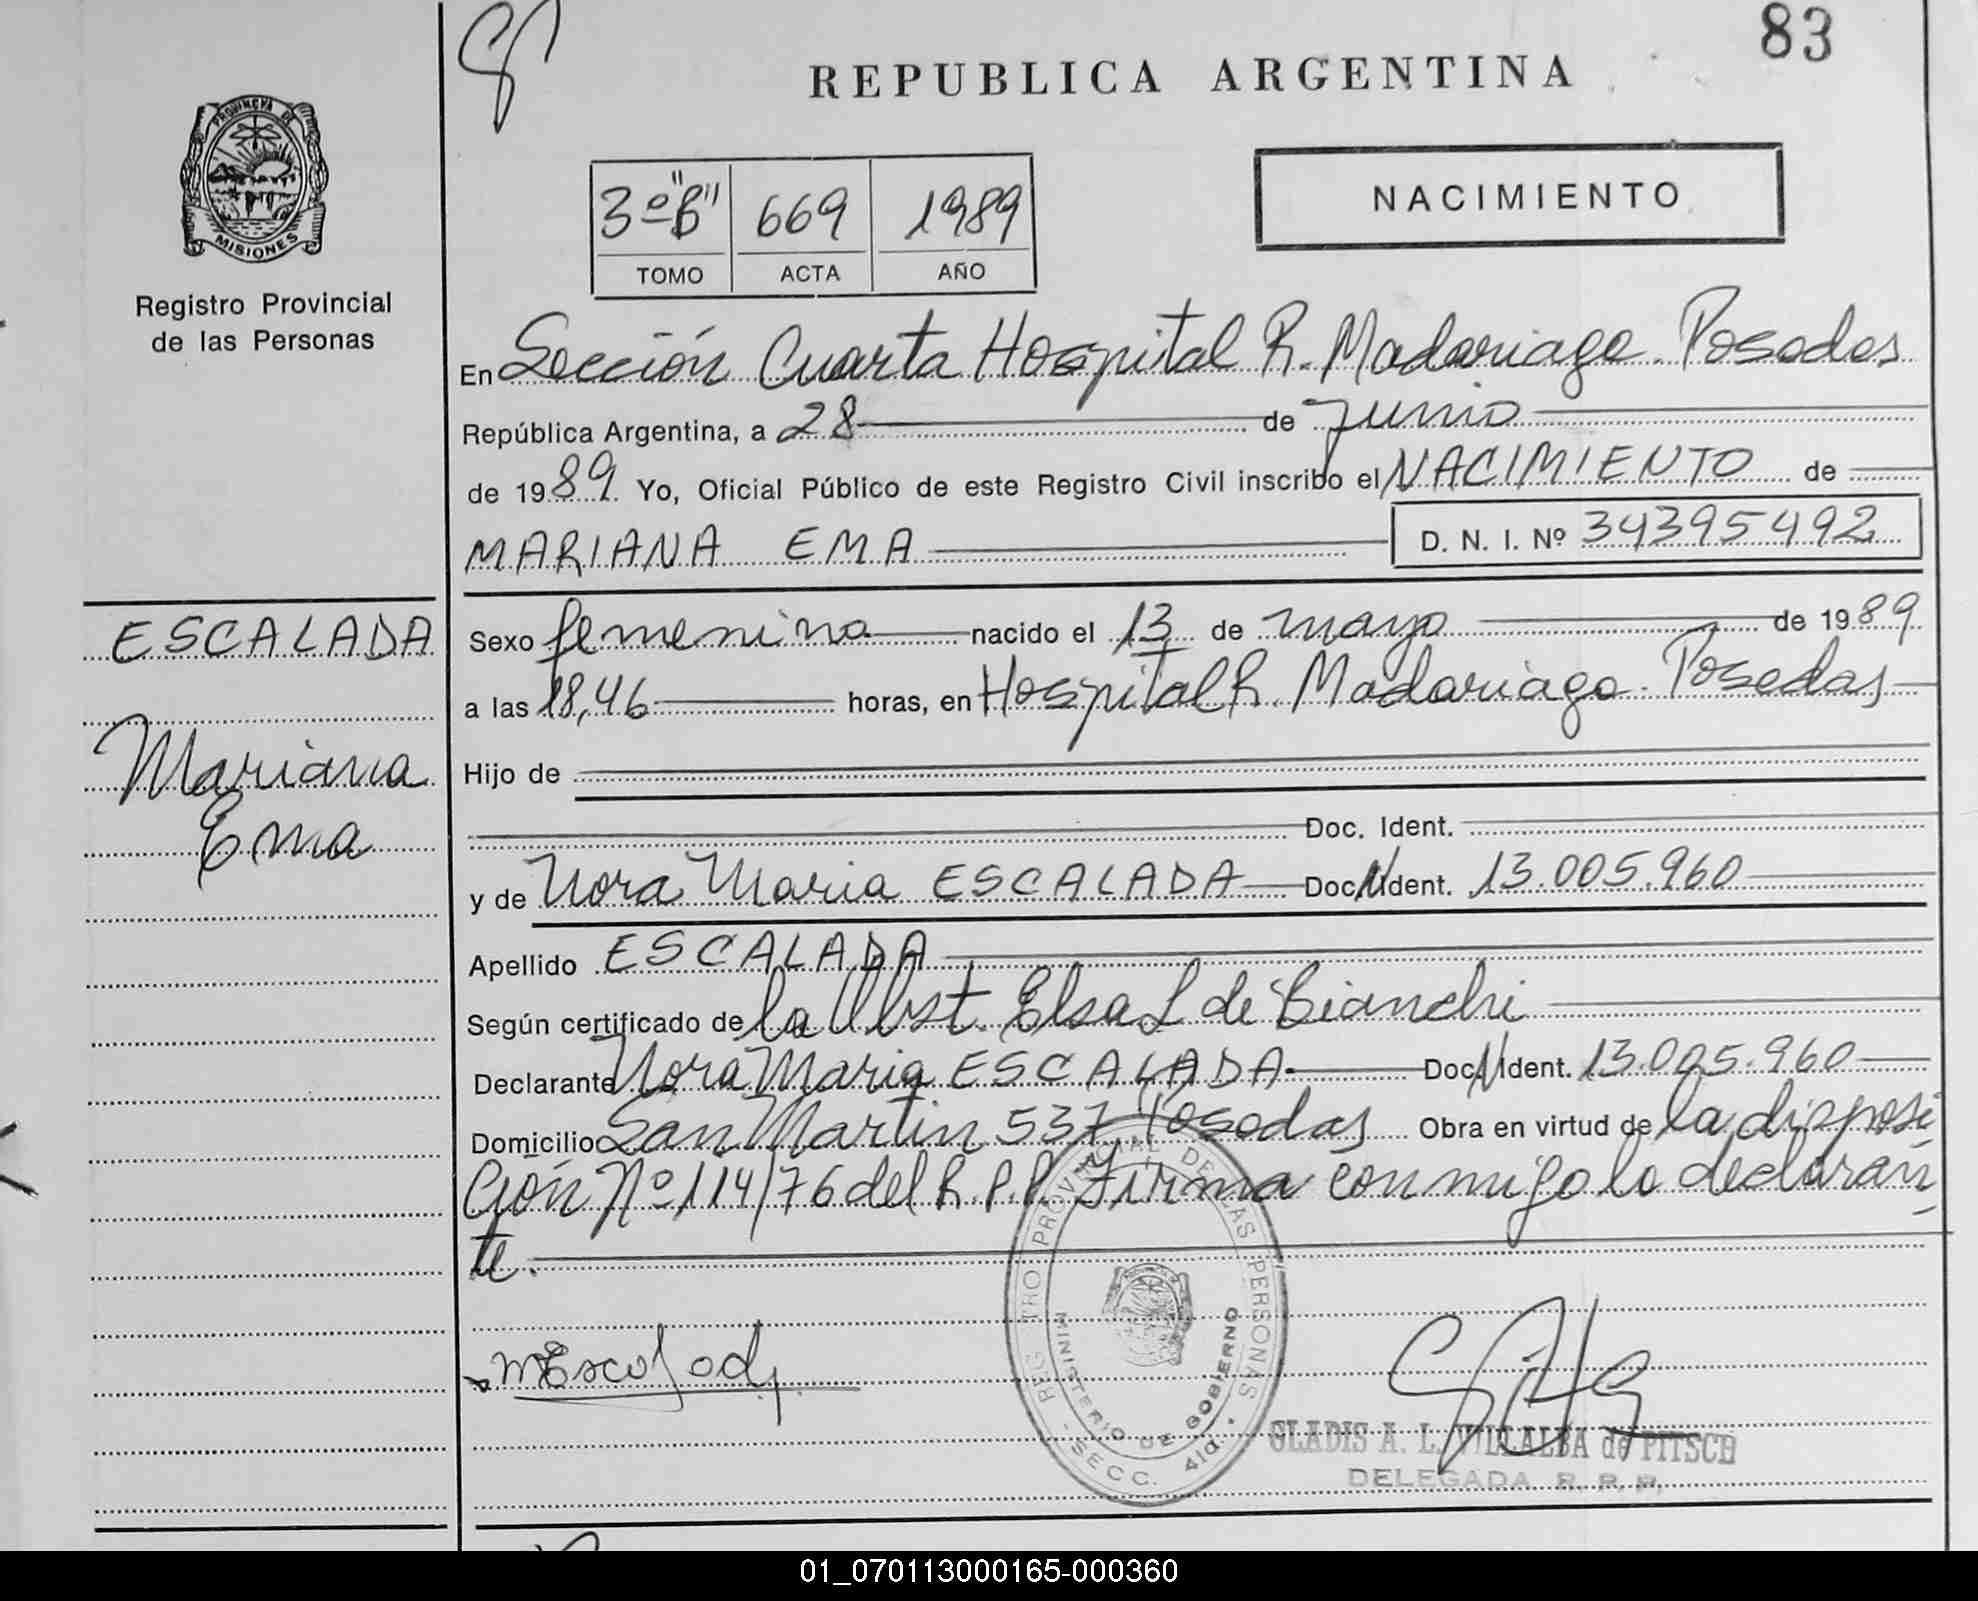 83
REPUBLICA ARGENTINA
PROVINCIA DE MISIONES
Registro Provincial
de las Personas
3º "B" 669 1989
TOMO ACTA AÑO
NACIMIENTO
En Sección Cuarta Hospital R. Madariaga. Posadas
República Argentina, a 28 de junio
de 1989. Yo, Oficial Público de este Registro Civil inscribo el NACIMIENTO de
MARIANA EMA D. N. I. Nº 34395492
ESCALADA
Mariana
Ema
Sexo femenino nacido el 13 de mayo de 1989
a las 18,46 horas, en Hospital R. Madariaga. Posadas
Hijo de
Doc. Ident.
y de Nora Maria ESCALADA Doc. N Ident. 13.005.960
Apellido ESCALADA
Según certificado de la Obst. Elsa L de Bianchi
Declarante Nora Maria ESCALADA Doc. N Ident. 13.005.960
Domicilio San Martin 537 Posadas Obra en virtud de la disposi
ción Nº 114/76 del R.P.P. Firma conmigo la declaran
te.
REGISTRO PROVINCIAL DE LAS PERSONAS
MINISTERIO DE GOBIERNO
SECC. 4ta.
GLADIS A. L. VILLALBA de PITSCH
DELEGADA R. P. P.
01_070113000165-000360